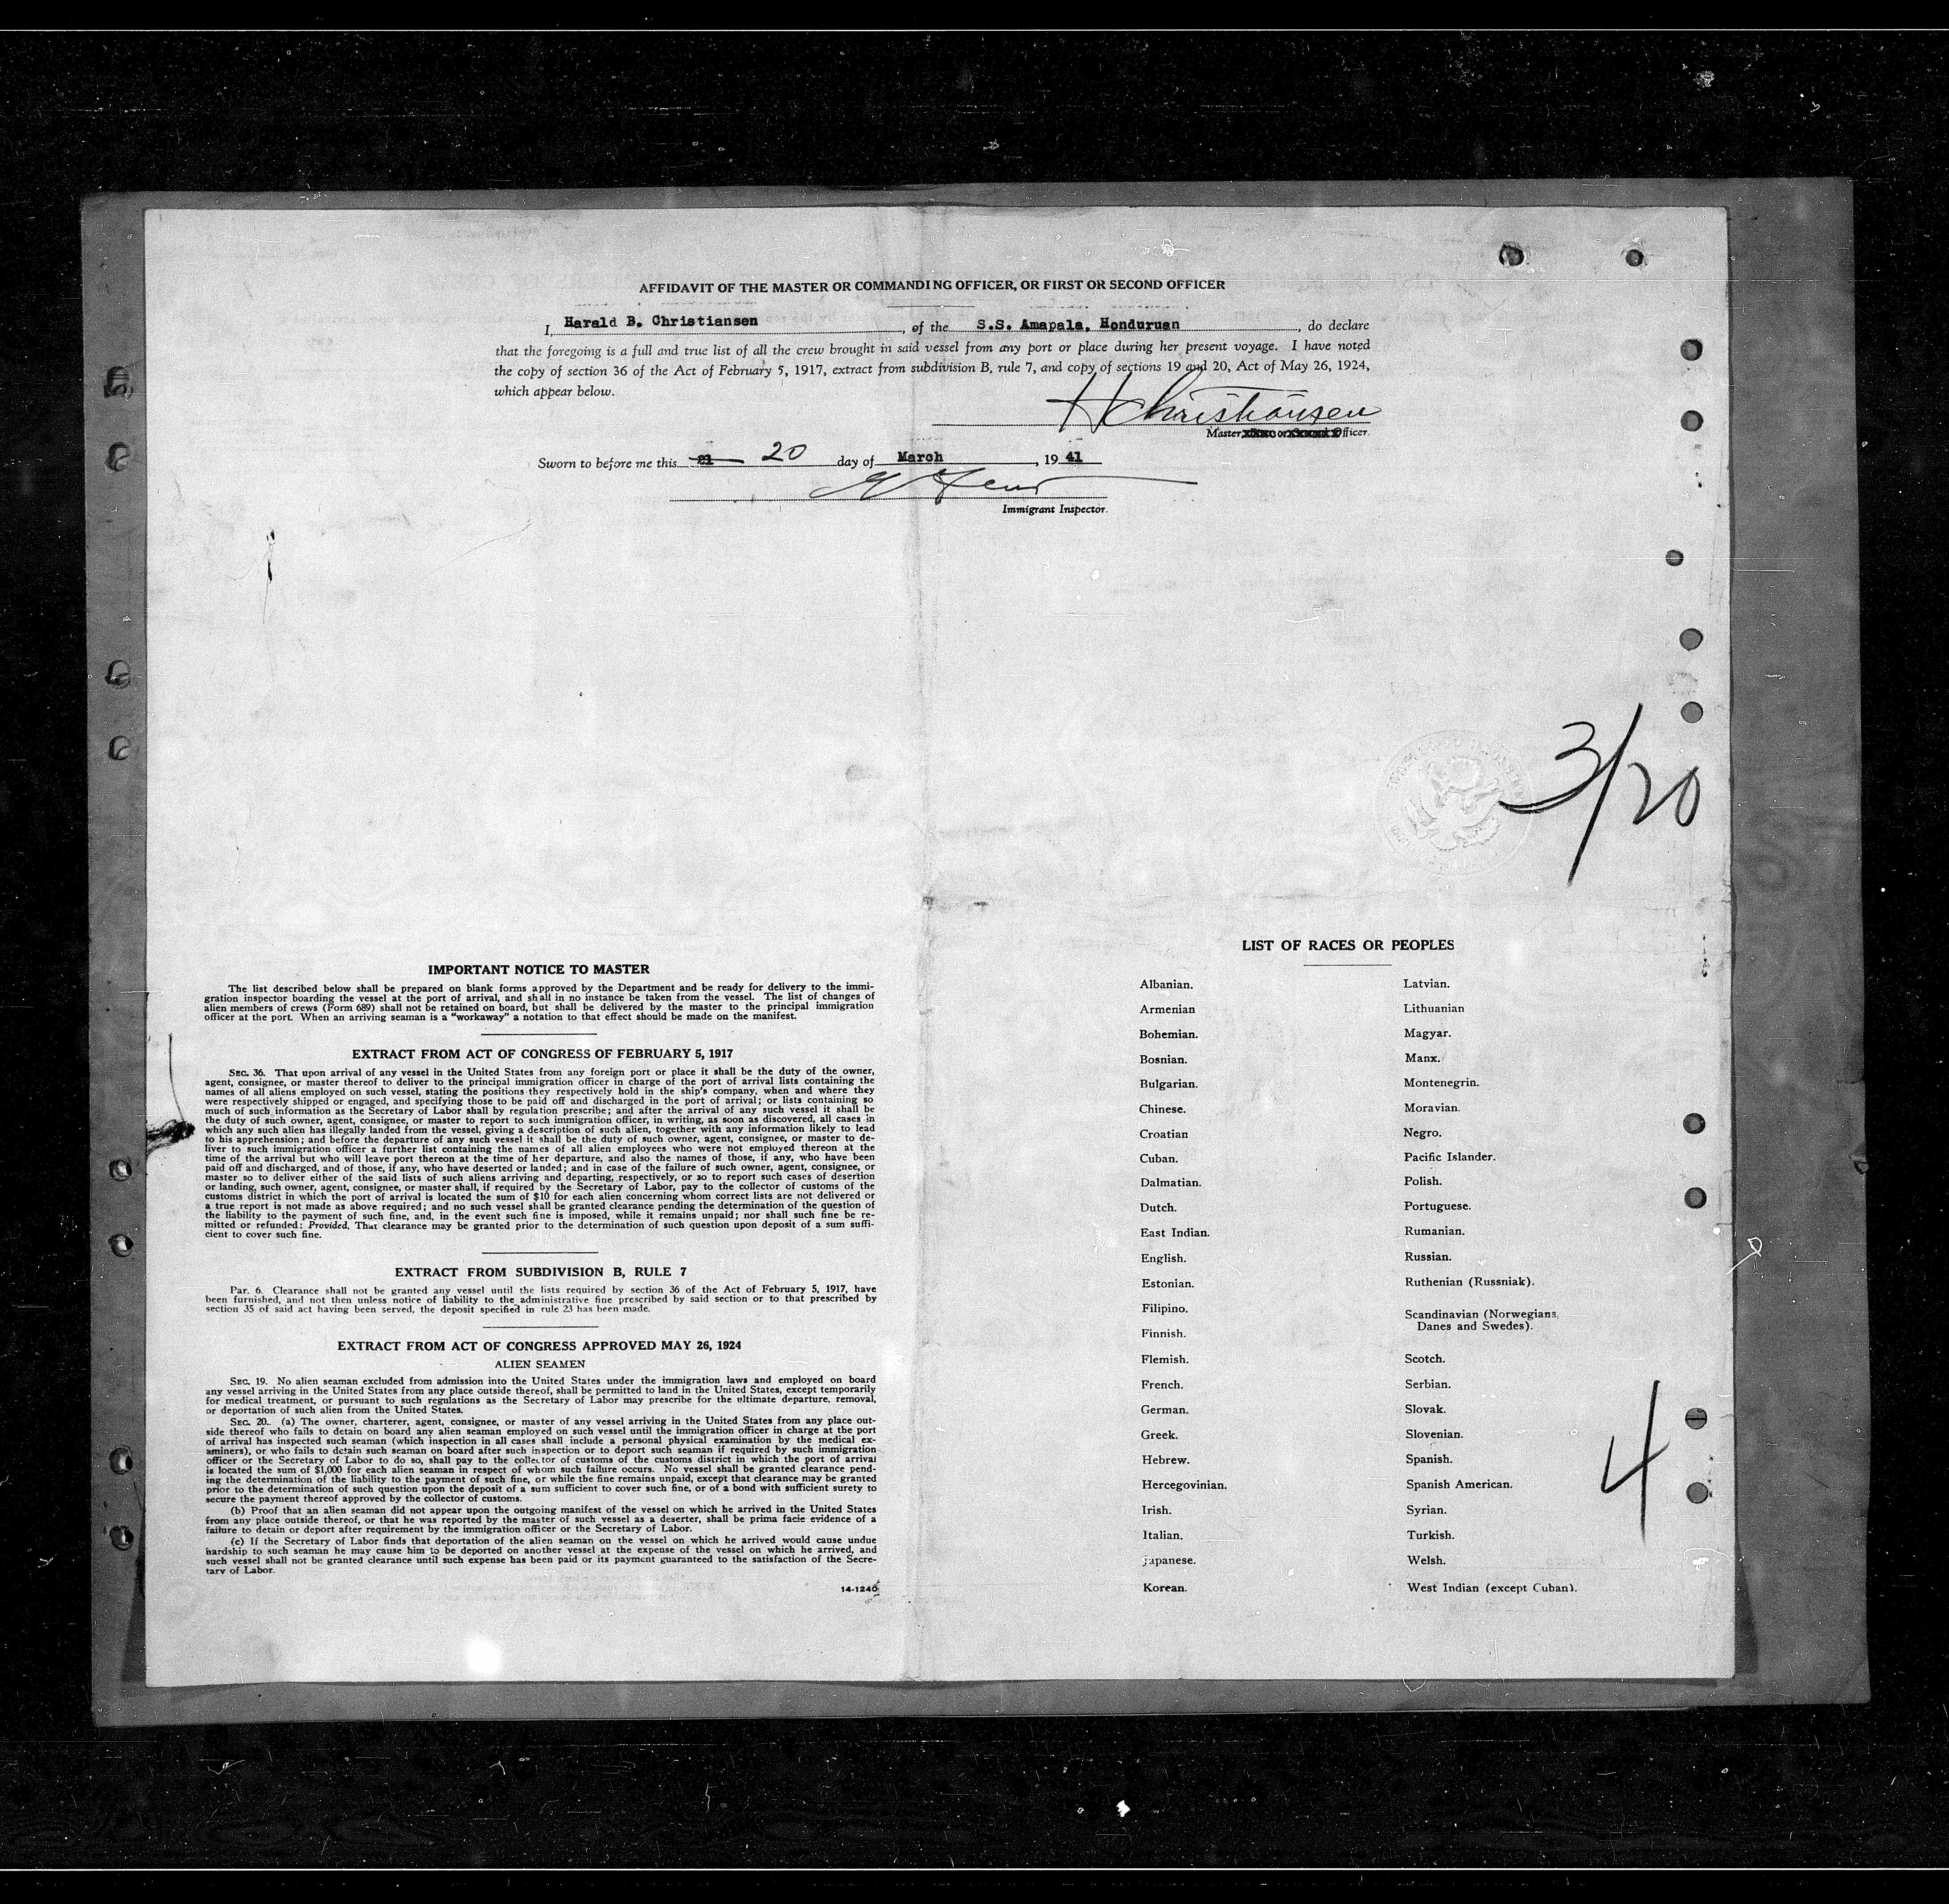 AFFIDAVIT OF THE MASTER OR COMMANDING OFFICER, OR FIRST OR SECOND OFFICER
I, Harald B. Christiansen, of the S.S. Amapala, Honduruan, do declare
that the foregoing is a full and true list of all the crew brought in said vessel from any port or place during her present voyage. I have noted
the copy of section 36 of the Act of February 5, 1917, extract from subdivision B, rule 7, and copy of sections 19 and 20, Act of May 26, 1924,
which appear below.
HChristiansen
Master, or Officer.
Sworn to before me this 21 20 day of March, 19 41
Immigrant Inspector.
3/20
IMPORTANT NOTICE TO MASTER
The list described below shall be prepared on blank forms approved by the Department and be ready for delivery to the immi-
gration inspector boarding the vessel at the port of arrival, and shall in no instance be taken from the vessel. The list of changes of
alien members of crews (Form 689) shall not be retained on board, but shall be delivered by the master to the principal immigration
officer at the port. When an arriving seaman is a "workaway" a notation to that effect should be made on the manifest.
EXTRACT FROM ACT OF CONGRESS OF FEBRUARY 5, 1917
SEC. 36. That upon arrival of any vessel in the United States from any foreign port or place it shall be the duty of the owner,
agent, consignee, or master thereof to deliver to the principal immigration officer in charge of the port of arrival lists containing the
names of all aliens employed on such vessel, stating the positions they respectively hold in the ship's company, when and where they
were respectively shipped or engaged, and specifying those to be paid off and discharged in the port of arrival; or lists containing so
much of such information as the Secretary of Labor shall by regulation prescribe; and after the arrival of any such vessel it shall be
the duty of such owner, agent, consignee, or master to report to such immigration officer, in writing, as soon as discovered, all cases in
which any such alien has illegally landed from the vessel, giving a description of such alien, together with any information likely to lead
to his apprehension; and before the departure of any such vessel it shall be the duty of such owner, agent, consignee, or master to de-
liver to such immigration officer a further list containing the names of all alien employees who were not employed thereon at the
time of the arrival but who will leave port thereon at the time of her departure, and also the names of those, if any, who have been
paid off and discharged, and of those, if any, who have deserted or landed; and in case of the failure of such owner, agent, consignee, or
master so to deliver either of the said lists of such aliens arriving and departing, respectively, or so to report such cases of desertion
or landing, such owner, agent, consignee, or master shall, if required by the Secretary of Labor, pay to the collector of customs of the
customs district in which the port of arrival is located the sum of $10 for each alien concerning whom correct lists are not delivered or
a true report is not made as above required; and no such vessel shall be granted clearance pending the determination of the question of
the liability to the payment of such fine, and, in the event such fine is imposed, while it remains unpaid; nor shall such fine be re-
mitted or refunded: Provided, That clearance may be granted prior to the determination of such question upon deposit of a sum suffi-
cient to cover such fine.
EXTRACT FROM SUBDIVISION B, RULE 7
Par. 6. Clearance shall not be granted any vessel until the lists required by section 36 of the Act of February 5, 1917, have
been furnished, and not then unless notice of liability to the administrative fine prescribed by said section or to that prescribed by
section 35 of said act having been served, the deposit specified in rule 23 has been made.
EXTRACT FROM ACT OF CONGRESS APPROVED MAY 26, 1924
ALIEN SEAMEN
SEC. 19. No alien seaman excluded from admission into the United States under the immigration laws and employed on board
any vessel arriving in the United States from any place outside thereof, shall be permitted to land in the United States, except temporarily
for medical treatment, or pursuant to such regulations as the Secretary of Labor may prescribe for the ultimate departure, removal,
or deportation of such alien from the United States.
SEC. 20. (a) The owner, charterer, agent, consignee, or master of any vessel arriving in the United States from any place out-
side thereof who fails to detain on board any alien seaman employed on such vessel until the immigration officer in charge at the port
of arrival has inspected such seaman (which inspection in all cases shall include a personal physical examination by the medical ex-
aminers), or who fails to detain such seaman on board after such inspection or to deport such seaman if required by such immigration
officer or the Secretary of Labor to do so, shall pay to the collector of customs of the customs district in which the port of arrival
is located the sum of $1,000 for each alien seaman in respect of whom such failure occurs. No vessel shall be granted clearance pend-
ing the determination of the liability to the payment of such fine, or while the fine remains unpaid, except that clearance may be granted
prior to the determination of such question upon the deposit of a sum sufficient to cover such fine, or of a bond with sufficient surety to
secure the payment thereof approved by the collector of customs.
(b) Proof that an alien seaman did not appear upon the outgoing manifest of the vessel on which he arrived in the United States
from any place outside thereof, or that he was reported by the master of such vessel as a deserter, shall be prima facie evidence of a
failure to detain or deport after requirement by the immigration officer or the Secretary of Labor.
(c) If the Secretary of Labor finds that deportation of the alien seaman on the vessel on which he arrived would cause undue
hardship to such seaman he may cause him to be deported on another vessel at the expense of the vessel on which he arrived, and
such vessel shall not be granted clearance until such expense has been paid or its payment guaranteed to the satisfaction of the Secre-
tary of Labor.
14-1240
LIST OF RACES OR PEOPLES
Albanian.
Armenian
Bohemian.
Bosnian.
Bulgarian.
Chinese.
Croatian
Cuban.
Dalmatian.
Dutch.
East Indian.
English.
Estonian.
Filipino.
Finnish.
Flemish.
French.
German.
Greek.
Hebrew.
Hercegovinian.
Irish.
Italian.
Japanese.
Korean.
Latvian.
Lithuanian
Magyar.
Manx.
Montenegrin.
Moravian.
Negro.
Pacific Islander.
Polish.
Portuguese.
Rumanian.
Russian.
Ruthenian (Russniak).
Scandinavian (Norwegians,
Danes and Swedes).
Scotch.
Serbian.
Slovak.
Slovenian.
Spanish.
Spanish American.
Syrian.
Turkish.
Welsh.
West Indian (except Cuban).
4